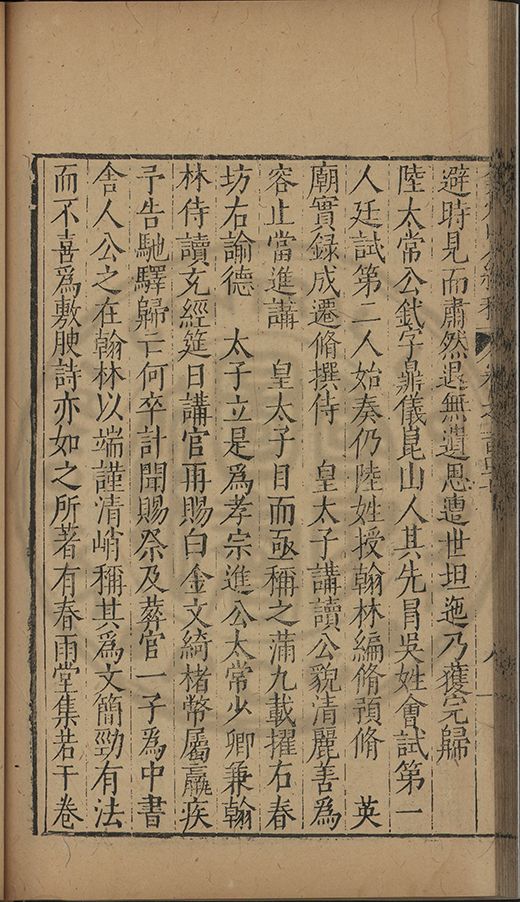 避時見而肅然退無遺思遭世坦迤乃獲完歸
陸太常公釴字鼎儀崑山人其先冐吳姓會試第一
人廷試第二人始奏仍陸姓授翰林編脩預脩　英
廟實録成遷脩撰侍　皇太子講讀公貌清麗善為
容止當進講　皇太子目而亟稱之滿九載擢右春
坊右諭德　太子立是爲孝宗進公太常少卿兼翰
林侍讀充經筵日講官再賜白金文綺楮幣屬羸疾
予告馳驛歸亡何卒訃聞賜祭及葬官一子爲中書
舍人公之在翰林以端謹清峭稱其爲文簡勁有法
而不喜爲敷腴詩亦如之所著有春雨堂集若干卷